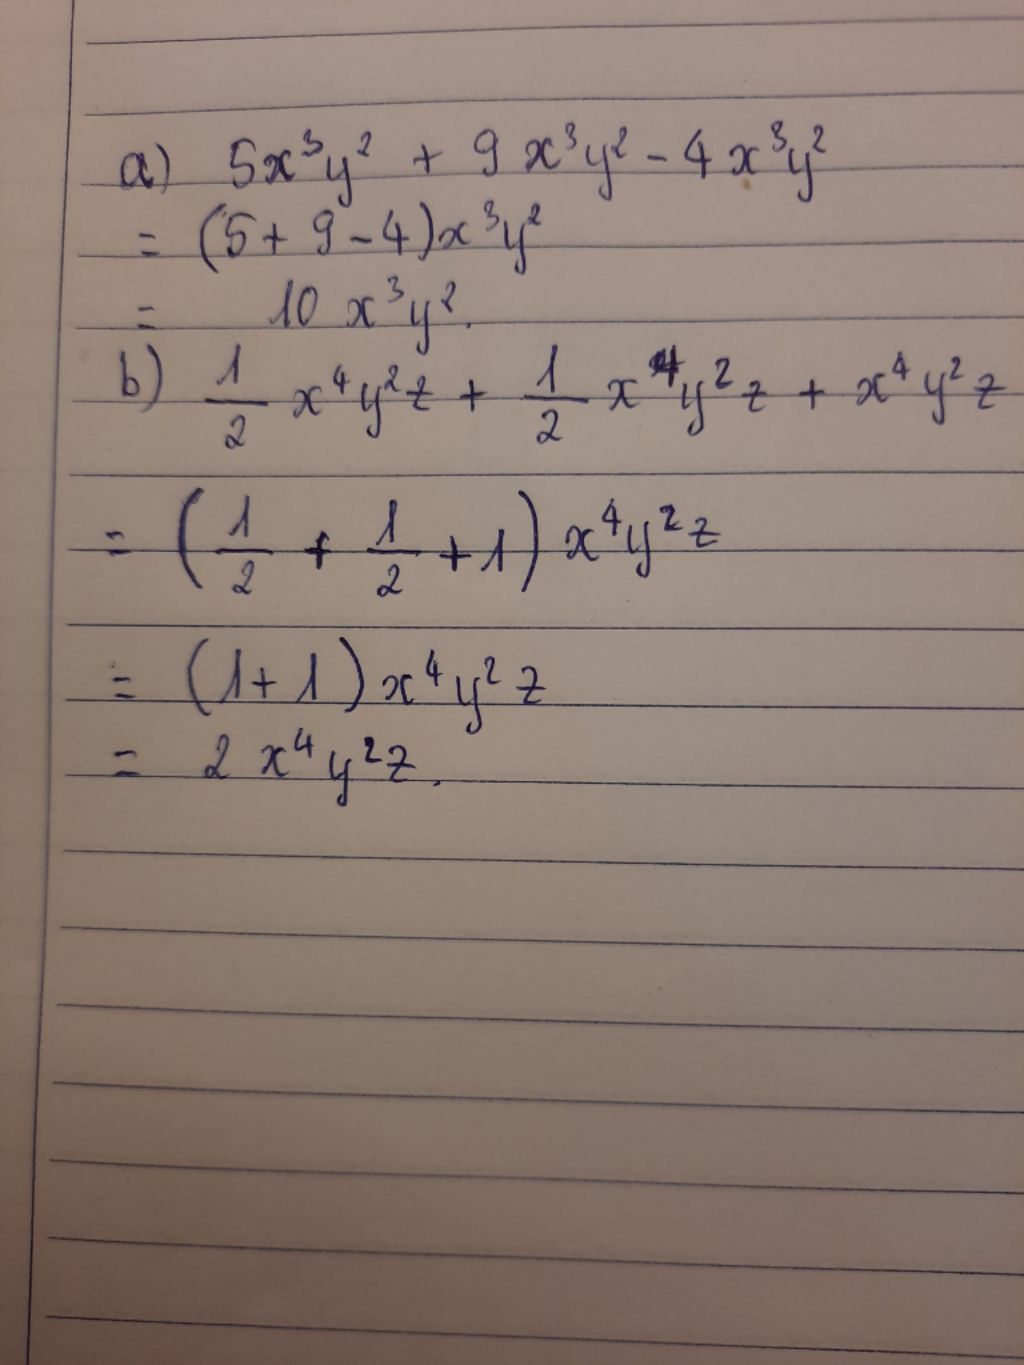 a) 5x³y² + 9x³y² - 4x³y²
= (5 + 9 - 4)x³y²
= 10 x³y².
b) 1/2 x⁴y²z + 1/2 x⁴y²z + x⁴y²z
= (1/2 + 1/2 + 1) x⁴y²z
= (1 + 1) x⁴y²z
= 2 x⁴y²z.